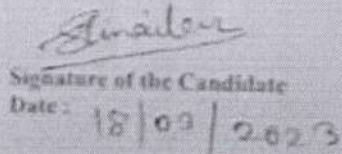 Signature of the Candidate
Date: 18/09/2023